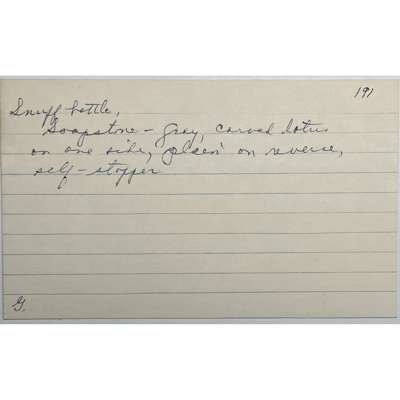 191
Snuff bottle,
Soapstone - grey, carved lotus
on one side, plain on reverse,
self-stopper
G.